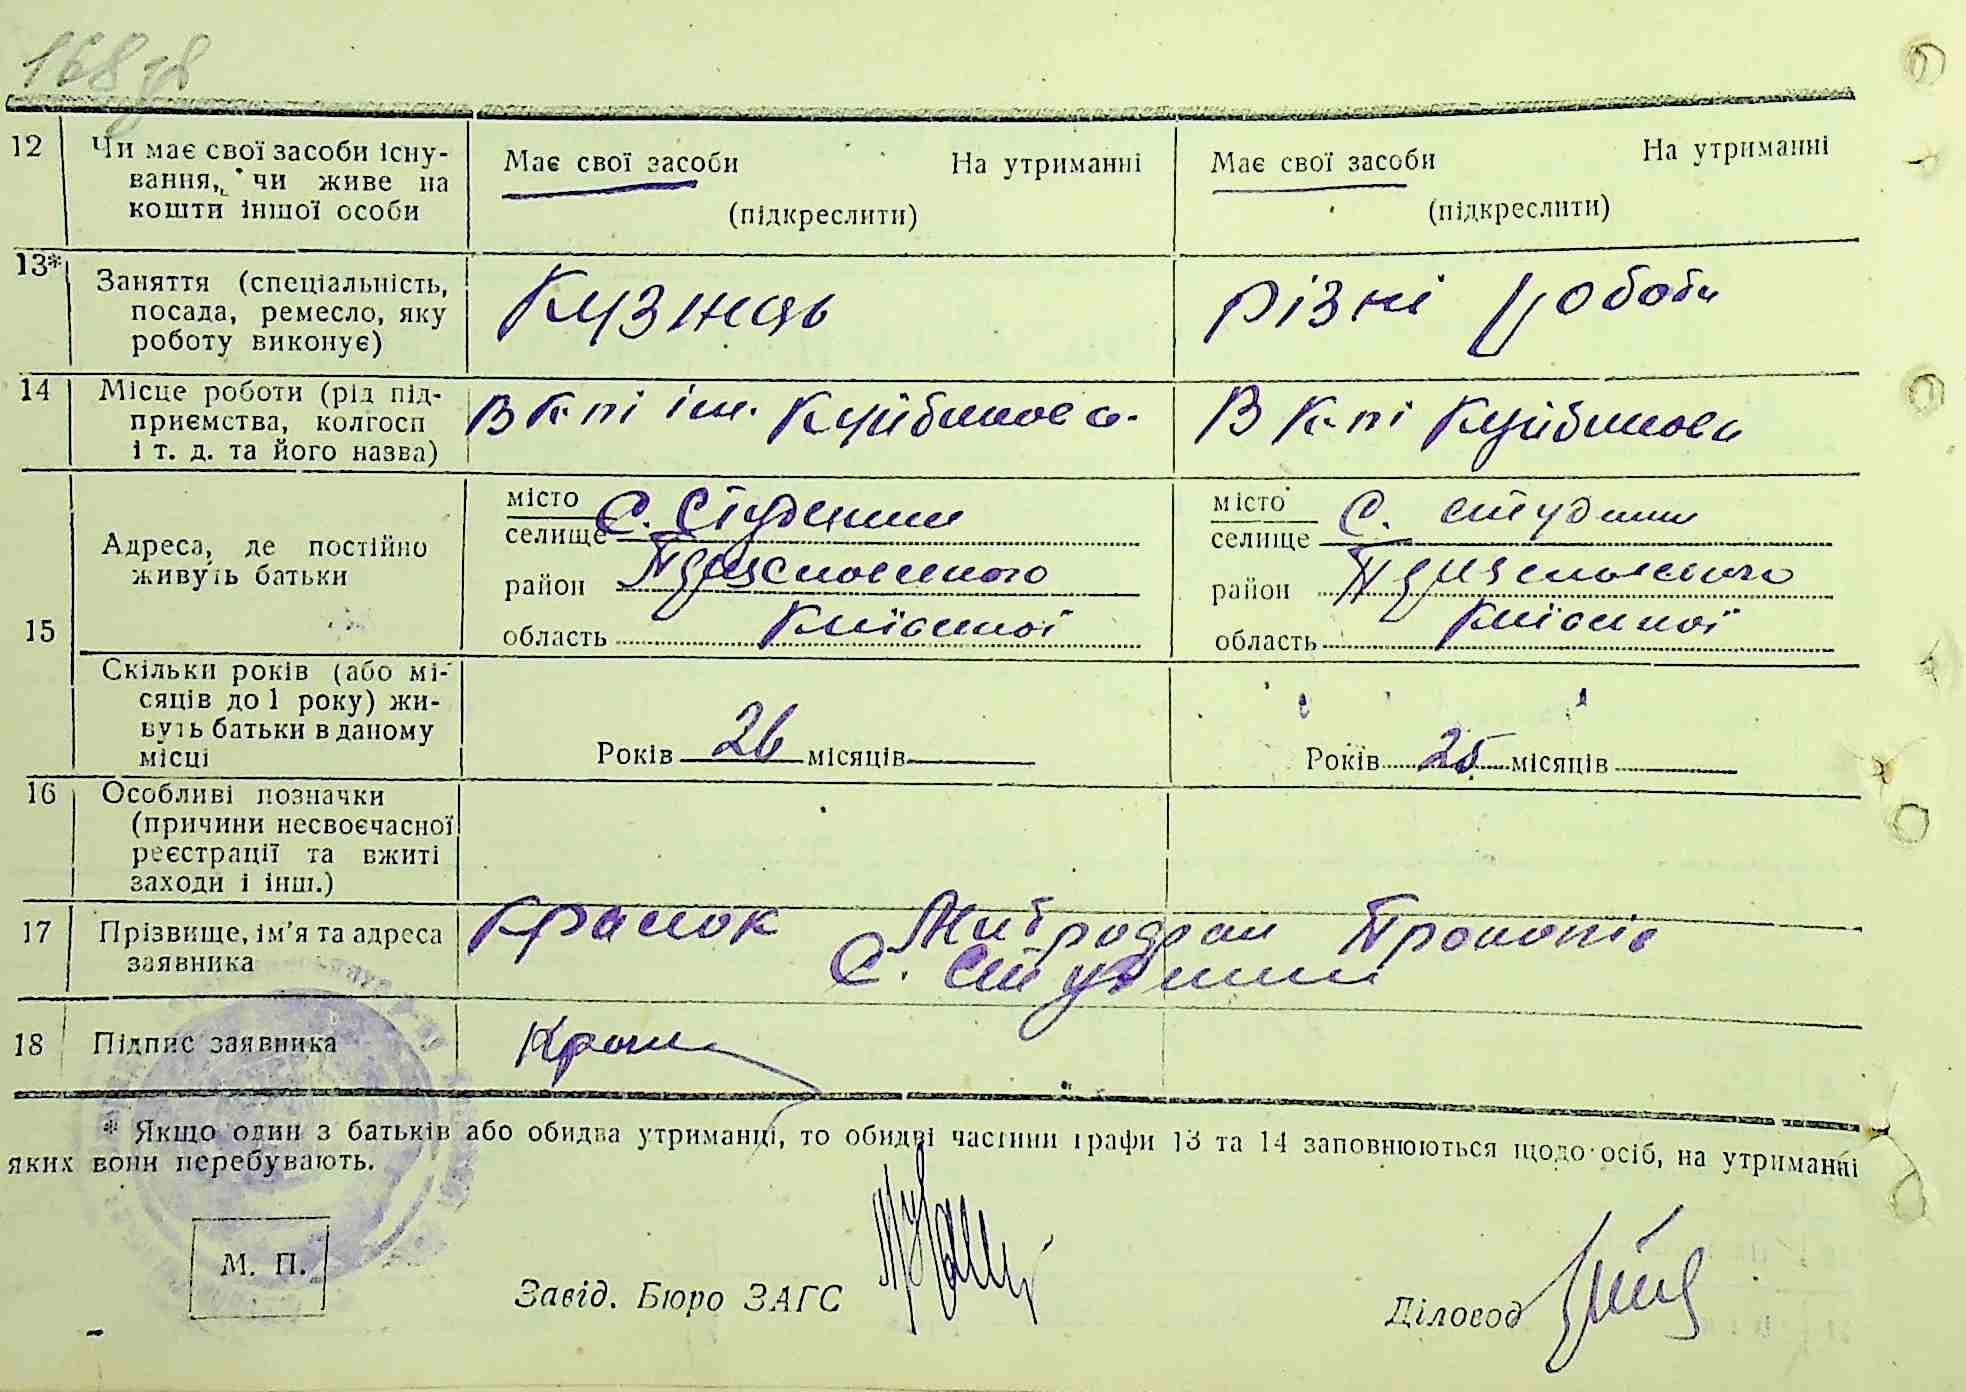 168 зв
12 Чи має свої засоби існу-
вання, чи живе на
кошти іншої особи
Має свої засоби На утриманні
(підкреслити)
Має свої засоби На утриманні
(підкреслити)
13* Заняття (спеціальність,
посада, ремесло, яку
роботу виконує)
Кузнець
різні роботи
14 Місце роботи (рід під-
приємства, колгосп
і т. д. та його назва)
В к-пі ім. Куйбишева
В к-пі Куйбишева
15 Адреса, де постійно
живуть батьки
місто
селище С. Студеники
район
область Київської
місто
селище С. Студики
район
область Київської
Скільки років (або мі-
сяців до 1 року) жи-
вуть батьки в даному
місці
Років 26 місяців
Років 25 місяців
16 Особливі позначки
(причини несвоєчасної
реєстрації та вжиті
заходи і інш.)
17 Прізвище, ім'я та адреса
заявника
Прокопів
С. Студики
18 Підпис заявника
* Якщо один з батьків або обидва утриманці, то обидві частини графи 13 та 14 заповнюються щодо осіб, на утриманні
яких вони перебувають.
М. П.
Завід. Бюро ЗАГС
Діловод